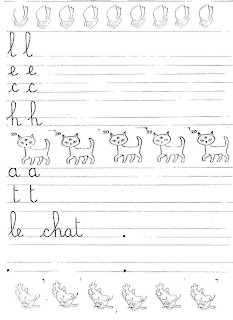 l l
e e
c c
h h
a a
t t
le chat .
. .